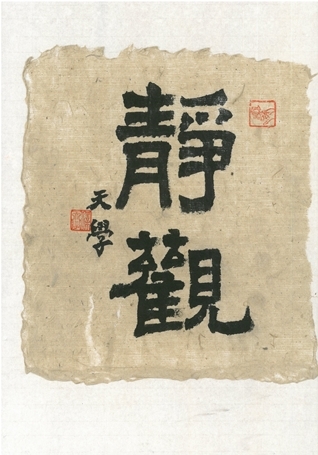 靜觀
天學